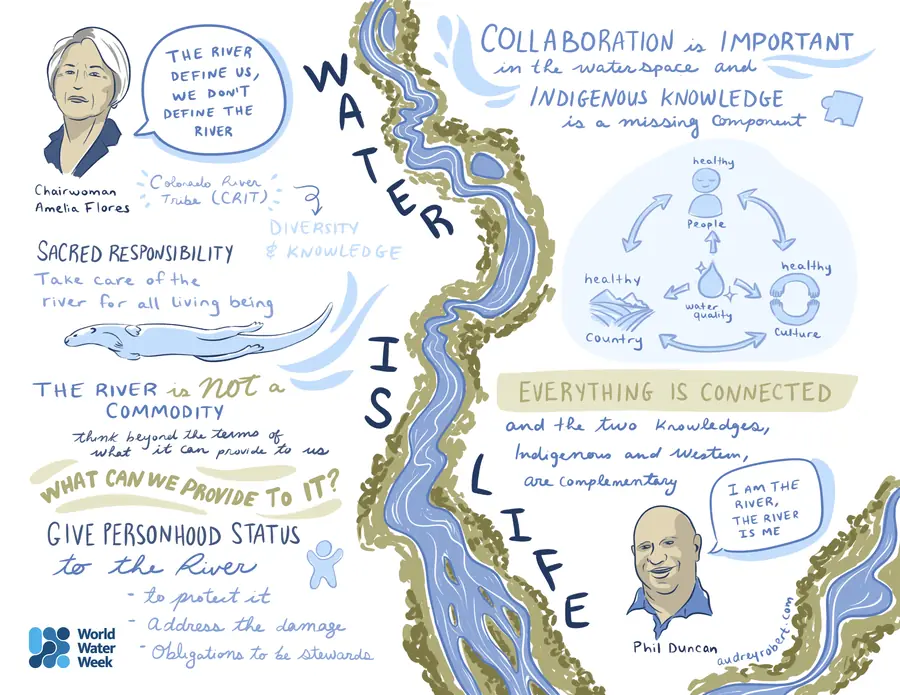 THE RIVER
DEFINE US,
WE DON'T
DEFINE THE
RIVER
Chairwoman
Amelia Flores
Colorado River
Tribe (CRIT)
DIVERSITY
& KNOWLEDGE
SACRED RESPONSIBILITY
Take care of the
river for all living being
THE RIVER is NOT a
COMMODITY
think beyond the terms of
what it can provide to us
WHAT CAN WE PROVIDE TO IT?
GIVE PERSONHOOD STATUS
to the River
- to protect it
- Address the damage
- Obligations to be stewards
World
Water
Week
WATER
IS
LIFE
COLLABORATION is IMPORTANT
in the water space and
INDIGENOUS KNOWLEDGE
is a missing component
healthy
People
healthy
Country
water
quality
healthy
Culture
EVERYTHING IS CONNECTED
and the two Knowledges,
Indigenous and Western,
are complementary
I AM THE
RIVER,
THE RIVER
IS ME
Phil Duncan
audreyrobert.com